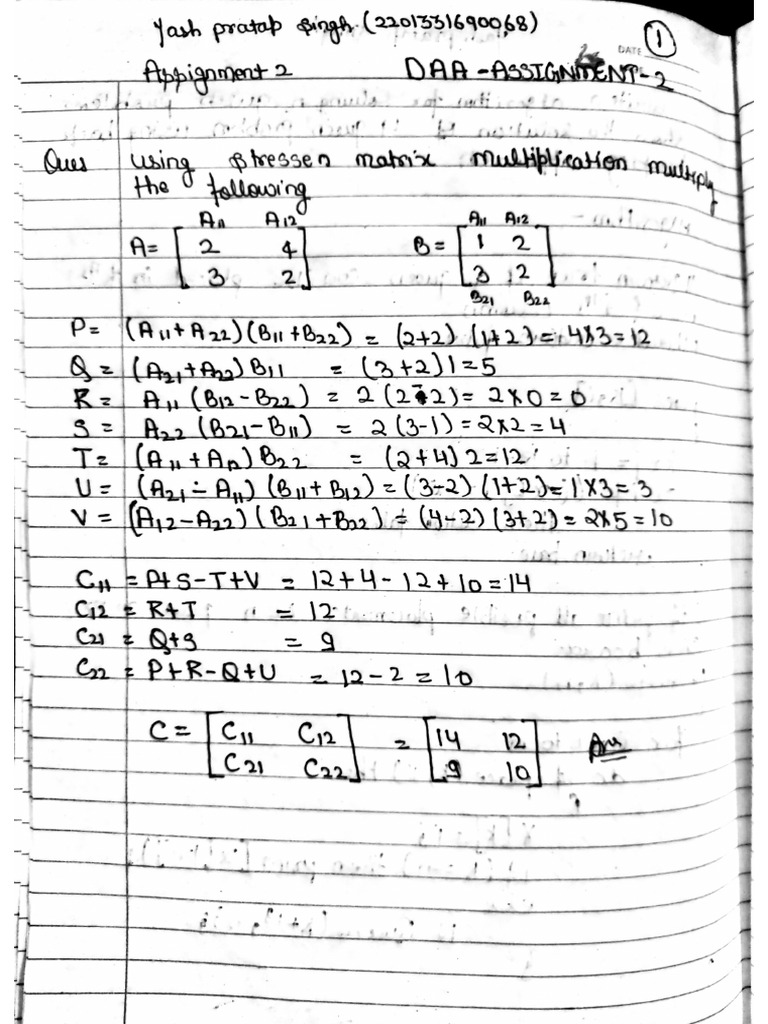 Yash pratap singh. (2201331690068)
1
DATE
Assignment 2 DAA-ASSIGNMENT-2
Ques using stressen matrix multiplication multiply
the following
A11 A12 A11 A12
A= [ 2 4 B = [ 1 2
3 2 ] 3 2 ]
B21 B22
P= (A11+A22)(B11+B22) = (2+2) (1+2) = 4×3=12
Q = (A21+A22) B11 = (3+2) 1=5
R = A11 (B12-B22) = 2 (2-2) = 2×0=0
S = A22 (B21-B11) = 2 (3-1) = 2×2=4
T= (A11+A12) B22 = (2+4) 2=12
U = (A21-A11) (B11+B12) = (3-2) (1+2)=1×3=3
V = (A12-A22) (B21+B22) = (4-2) (3+2) = 2×5=10
C11 = P+S-T+V = 12+4-12+10=14
C12 = R+T = 12
C21 = Q+S = 9
C22 = P+R-Q+U = 12-2=10
C = [ C11 C12 = [ 14 12 Ans
C21 C22 ] 9 10 ]